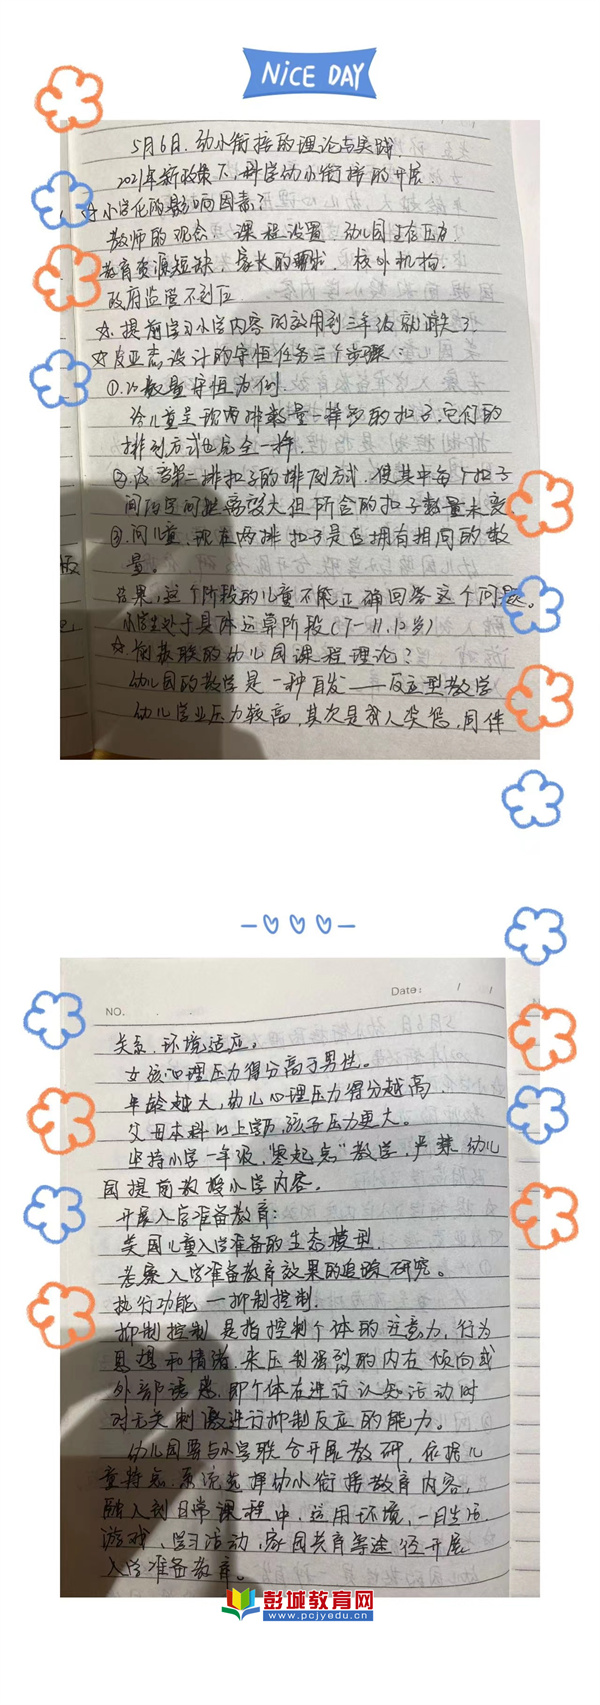 NiCE DAY
5月6日.幼小衔接的理论与实践.
2021年新政策下,科学幼小衔接的开展.
☆小学化的影响因素?
教师的观念 课程设置 幼儿园生存压力.
教育资源短缺.家长的需求.校外机构.
政府监管不到位
☆.提前学习小学内容的效用到三年级就消失了
☆皮亚杰设计的守恒任务三个步骤:
①.以数量守恒为例.
给儿童呈现两排数量一样多的扣子.它们的
排列方式也完全一样.
②.改变第二排扣子的排列方式.使其中每个扣子
间的空间距离变大但所含的扣子数量未变.
③.问儿童,现在两排扣子是否拥有相同的数
量。
结果,这个阶段的儿童不能正确回答这个问题。
小学生处于具体运算阶段(7-11.12岁)
☆前苏联的幼儿园课程理论?
幼儿园的教学是一种自发——反应型教学
幼儿学业压力较高,其次是成人奖惩,同伴
Date: / /
NO.
关系,环境适应。
女孩心理压力得分高于男性。
年龄越大,幼儿心理压力得分越高.
父母本科以上学历,孩子压力更大。
坚持小学一年级."零起点"教学,严禁幼儿
园提前教授小学内容.
开展入学准备教育:
美国儿童入学准备的生态模型.
考察入学准备教育效果的追踪研究。
执行功能—抑制控制.
抑制控制是指控制个体的注意力,行为
思想和情绪.来压制强烈的内在倾向或
外部诱惑.即个体在进行认知活动时
对无关刺激进行抑制反应的能力。
幼儿园要与小学联合开展教研,依据儿
童特点.系统选择幼小衔接教育内容,
融入到日常课程中.运用环境,一日生活.
游戏,学习活动,家园共育等途径开展
入学准备教育。
彭城教育网
www.pcjyedu.cn